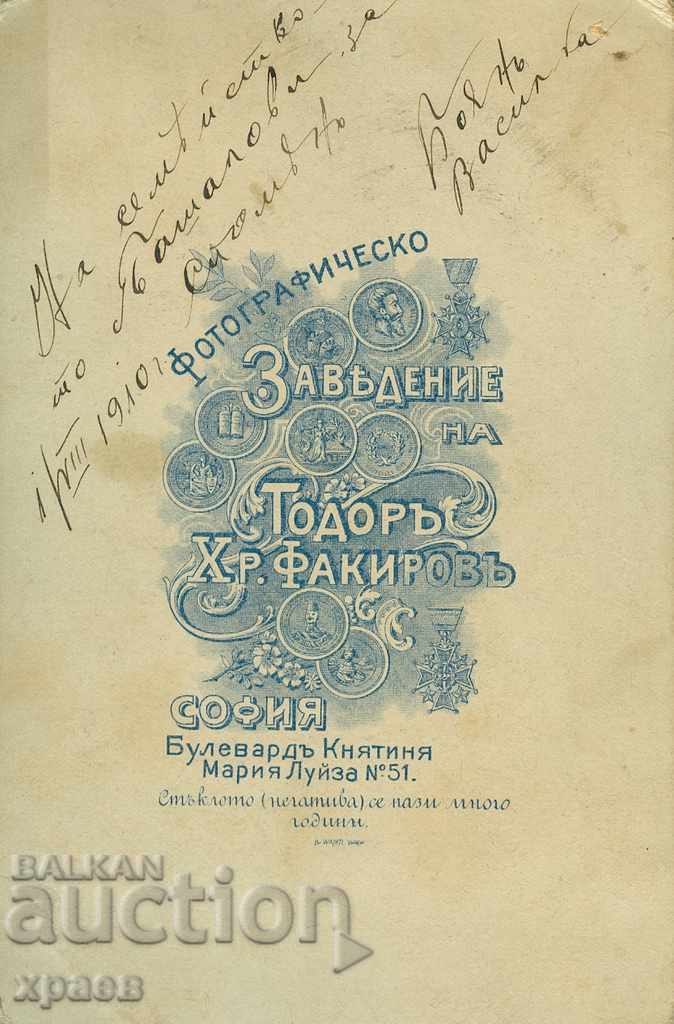 На семѣйство
то Башапови за
Споменъ
1/VIII 1910 г.
Боянъ
Василка
ФОТОГРАФИЧЕСКО
ЗАВѢДЕНИЕ
НА
ТОДОРЪ
ХР. ФАКИРОВЪ
СОФИЯ
Булевардъ Княтиня
Мария Луйза №51.
Стъклото (негатива) се пази много
години.
BALKAN
auction
храев